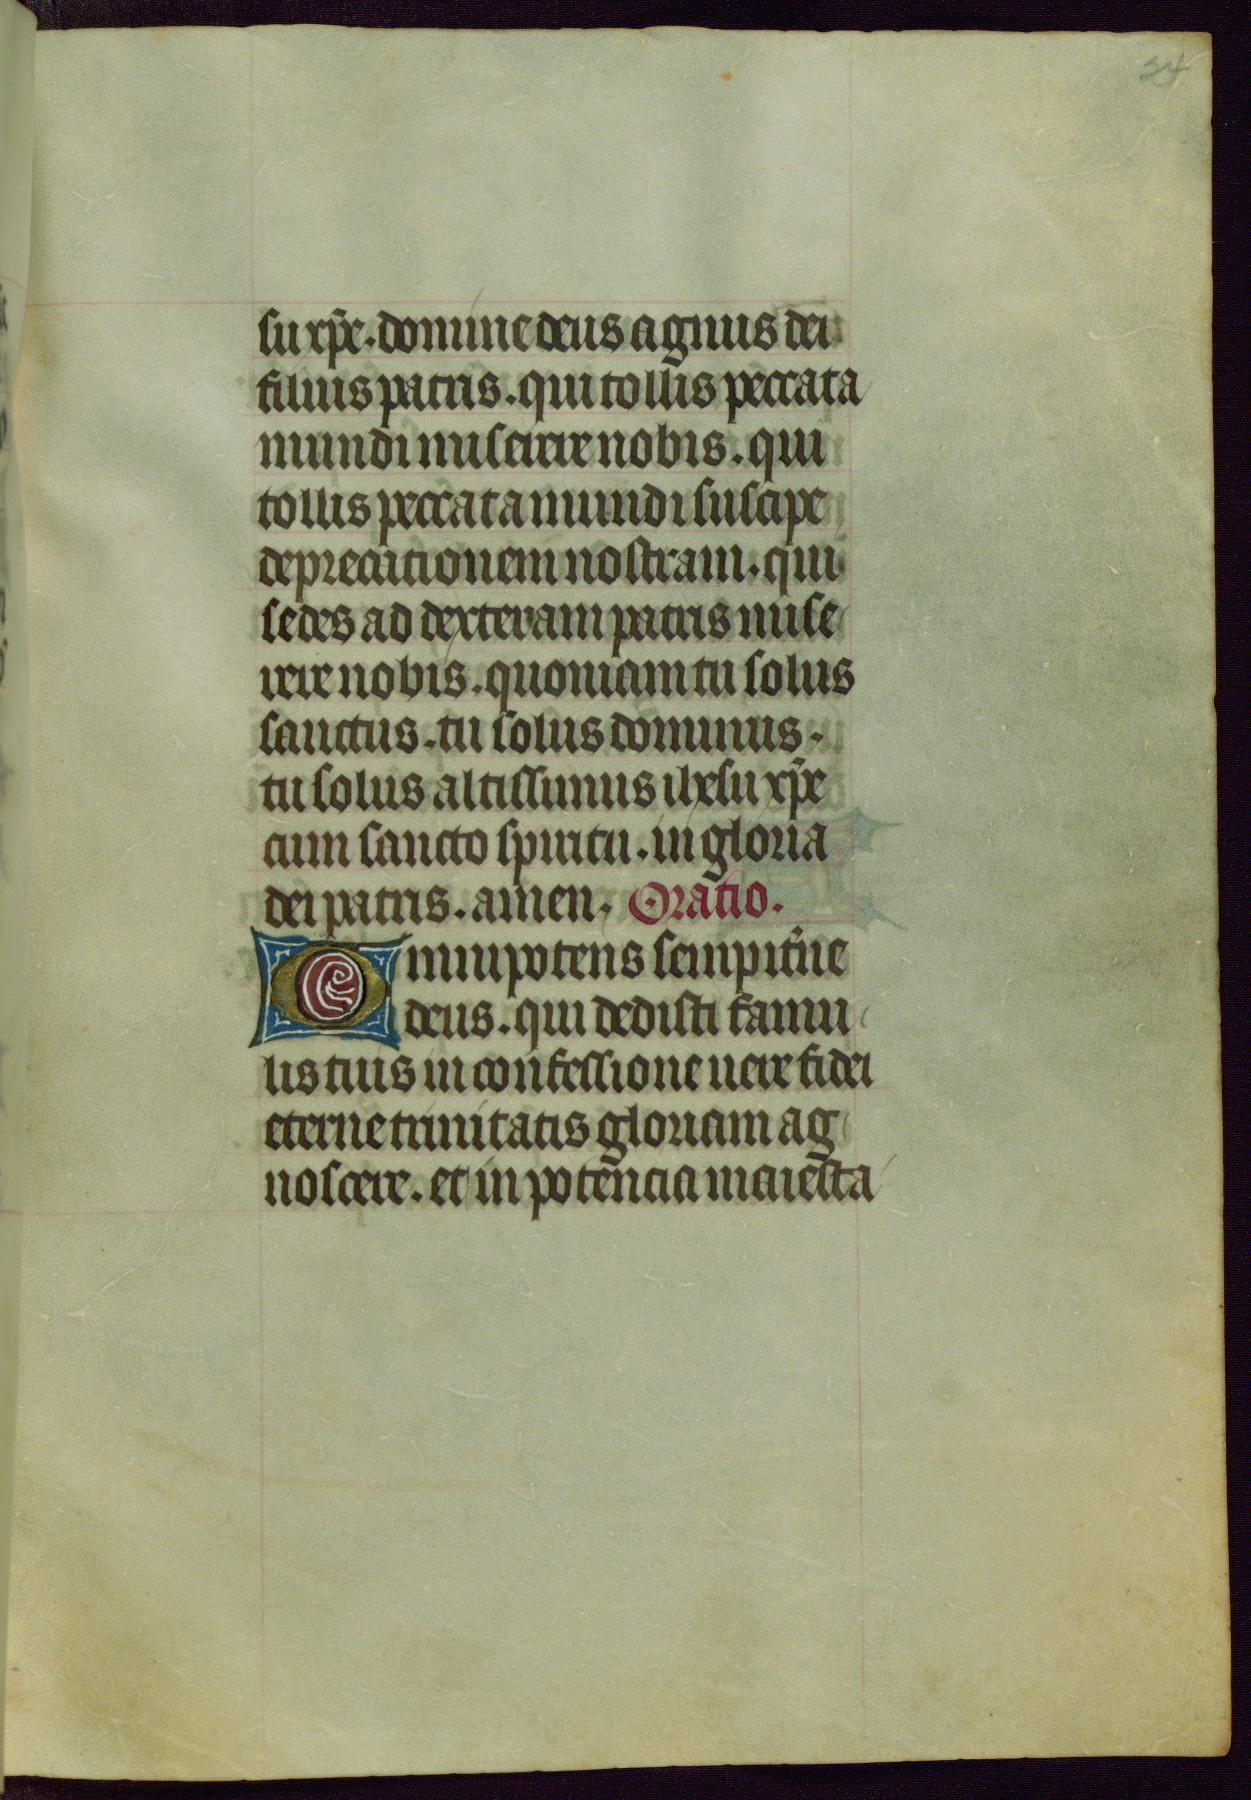 34
su xpē. domine deus agnus dei
filius patris. qui tollis peccata
mundi miserere nobis. qui
tollis peccata mundi suscipe
deprecationem nostram. qui
sedes ad dexteram patris mise
rere nobis. quoniam tu solus
sanctus. tu solus dominus.
tu solus altissimus ihesu xpē
cum sancto spiritu. in gloria
dei patris. amen. Oratio.
Omnipotens sempiťne
deus. qui dedisti famu
lis tuis in confessione uere fidei
eterne trinitatis gloriam ag
noscere. et in potencia maiesta